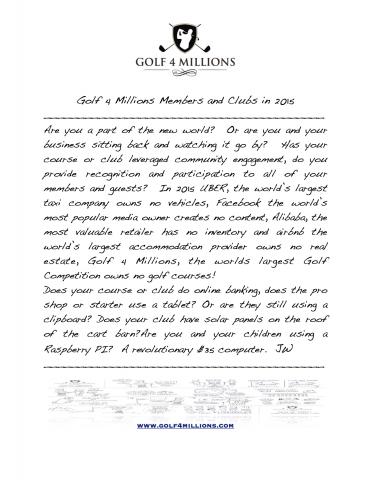 GOLF 4 MILLIONS
Golf 4 Millions Members and Clubs in 2015
Are you a part of the new world? Or are you and your
business sitting back and watching it go by? Has your
course or club leveraged community engagement, do you
provide recognition and participation to all of your
members and guests? In 2015 UBER, the world's largest
taxi company owns no vehicles, Facebook the world's
most popular media owner creates no content, Alibaba, the
most valuable retailer has no inventory and airbnb the
world's largest accommodation provider owns no real
estate, Golf 4 Millions, the worlds largest Golf
Competition owns no golf courses!
Does your course or club do online banking, does the pro
shop or starter use a tablet? Or are they still using a
clipboard? Does your club have solar panels on the roof
of the cart barn?Are you and your children using a
Raspberry PI? A revolutionary $35 computer. JW
www.golf4millions.com